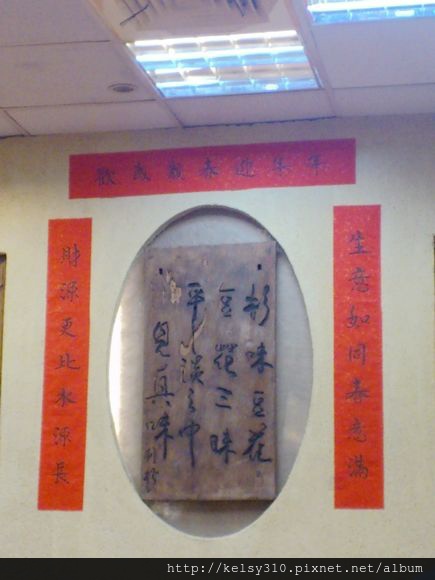 迎春
生意如同春意滿
味豆花
豆花三味
平淡之中
見真味
財源更比水源長
http://kelsy310.pixnet.net/album